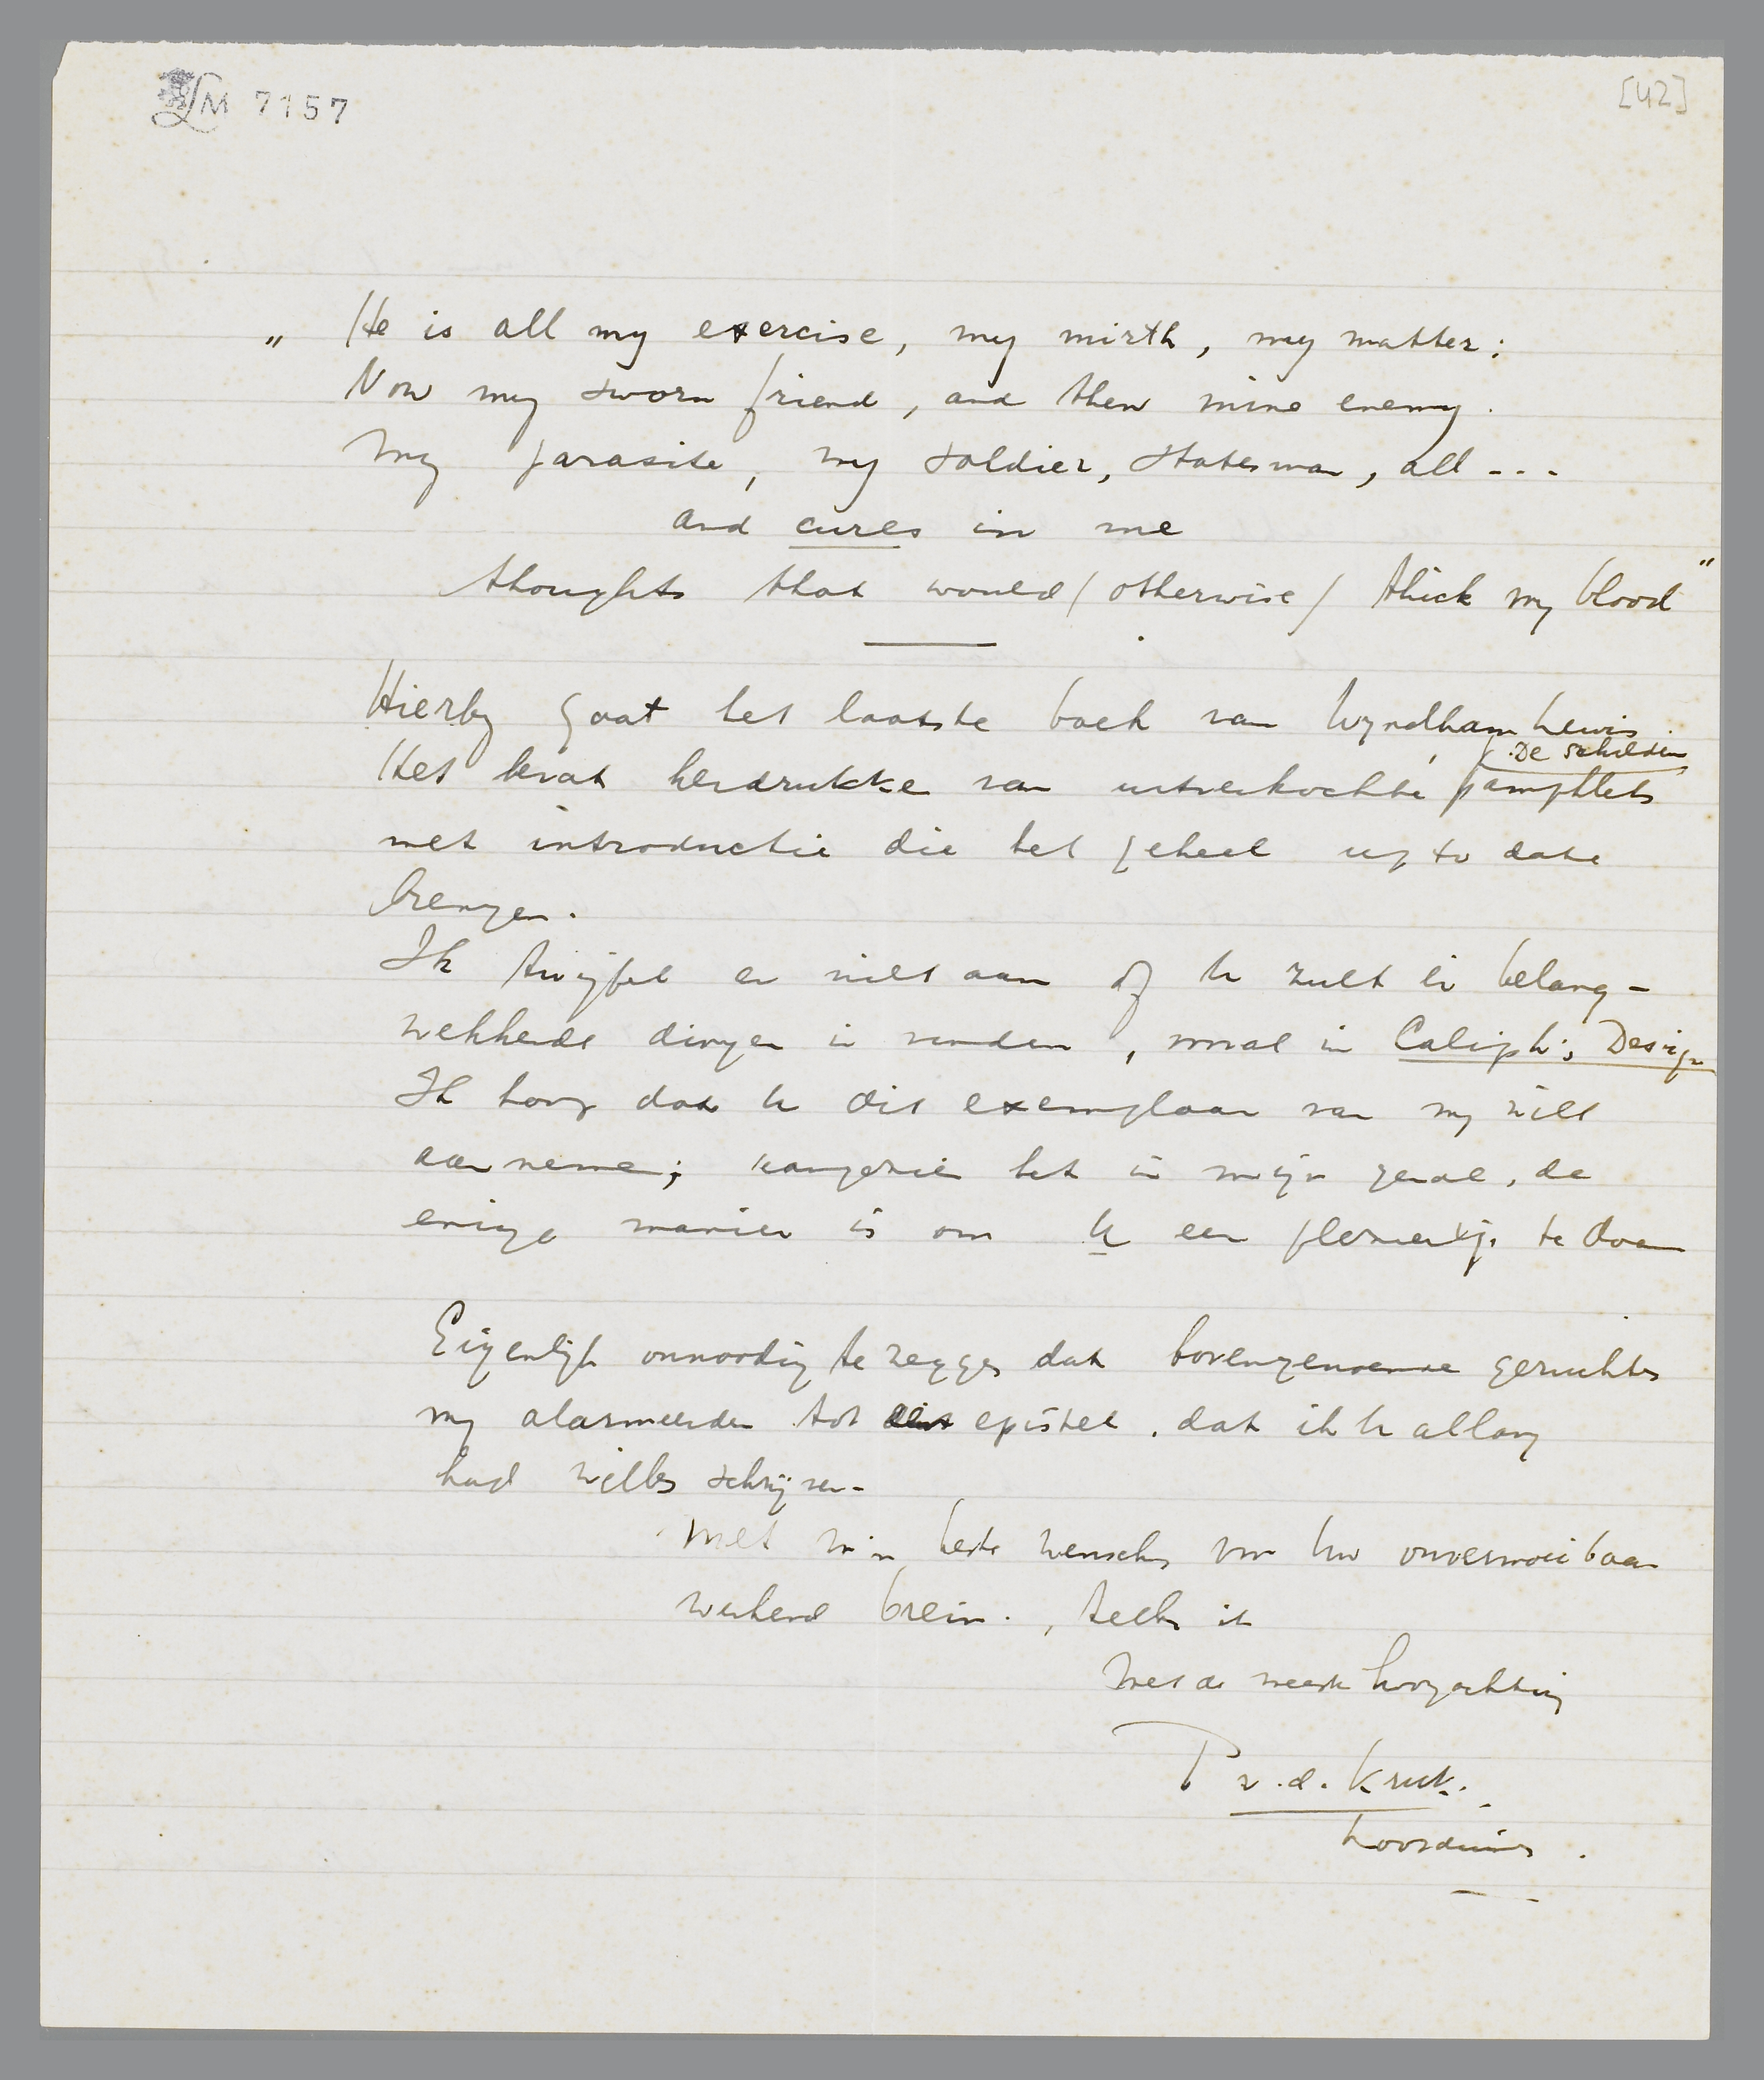 LM 7157
[42]
„ He is all my exercise, my mirth, my matter:
Now my sworn friend, and then mine enemy.
My parasite, my soldier, statesman, all ---
and cures in me
thoughts that would / otherwise / thick my blood"
Hierby gaat het laatste boek van Wyndham Lewis.
De schilder
Het bevat herdrukken van uitverkochte pamphlets
met introductie die het geheel up to date
brengen.
Ik twijfel er niet aan of U zult er belang-
wekkende dingen in vinden, vooral in Caliph's Design
Ik hoop dat U dit exemplaar van my wilt
aannemen; aangezien het in mijn geval, de
enige manier is om U een pleziertje te doen
Eigenlijk onnoodig te zeggen dat bovengenoemde geruchten
my alarmeerden tot epistel, dat ik U allang
had willen schrijven.
Met mijn beste wenschen voor Uw onvermoeibaar
werkend brein., teeken ik
Met de meeste hoogachting
P v.d. Kruk.
Loosduinen.